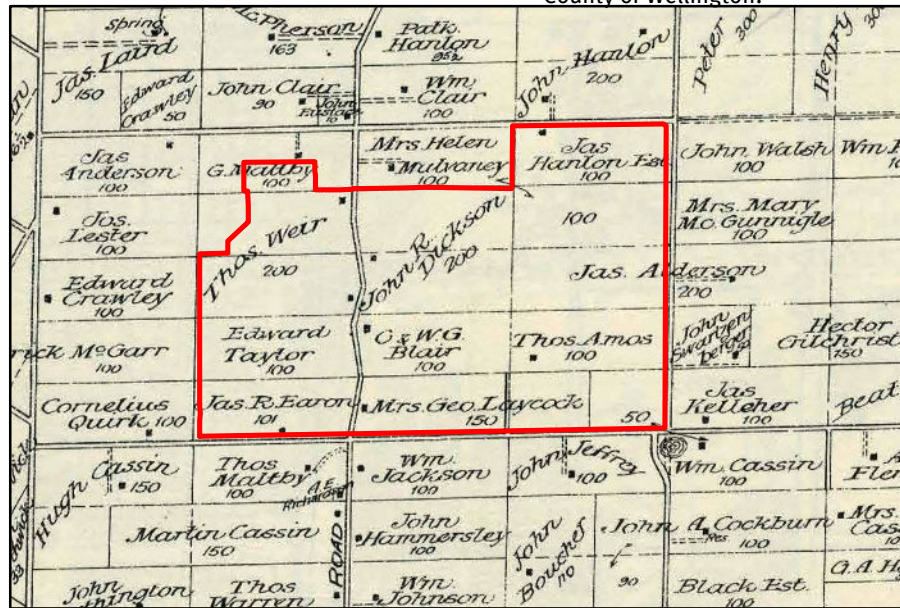 County of Wellington.
Spring
Jas. Laird
150
Edward
Crawley
50
McPherson
163
John Clair
90
John
Eustace
10
Patk.
Hanlon
95½
Wm
Clair
100
John Hanlon
200
Peter
300
Henry
Jas
Anderson
100
G. Maltby
100
Mrs. Helen
Mulvaney
100
Jas
Hanlon Est.
100
John Walsh
100
Jos.
Lester
100
Thos. Weir
200
John R.
Dickson
200
100
Mrs. Mary
Mc. Gunnigle
100
Edward
Crawley
100
Jas. Alderson
200
rick McGarr
100
Edward
Taylor
100
C & W.G.
Blair
100
Thos. Amos
100
John
Swartzen
berger
50
Hector
Gilchrist
150
Cornelius
Quirk 100
Jas. R. Earon
101
Mrs. Geo. Laycock
150
50
Jas
Kelleher
100
Beat
Hugh Cassin
150
Thos
Maltby
100
A.E.
Richardson
Wm.
Jackson
100
John Jeffrey
100
Wm. Cassin
100
Flem
Martin Cassin
150
ROAD
John
Hammersley
100
John
Boucher
110
John A. Cockburn
Res.
100
90
Mrs.
Cass
John
thington
Thos
Warren
Wm.
Johnson
Black Est.
100
G.A. H
33